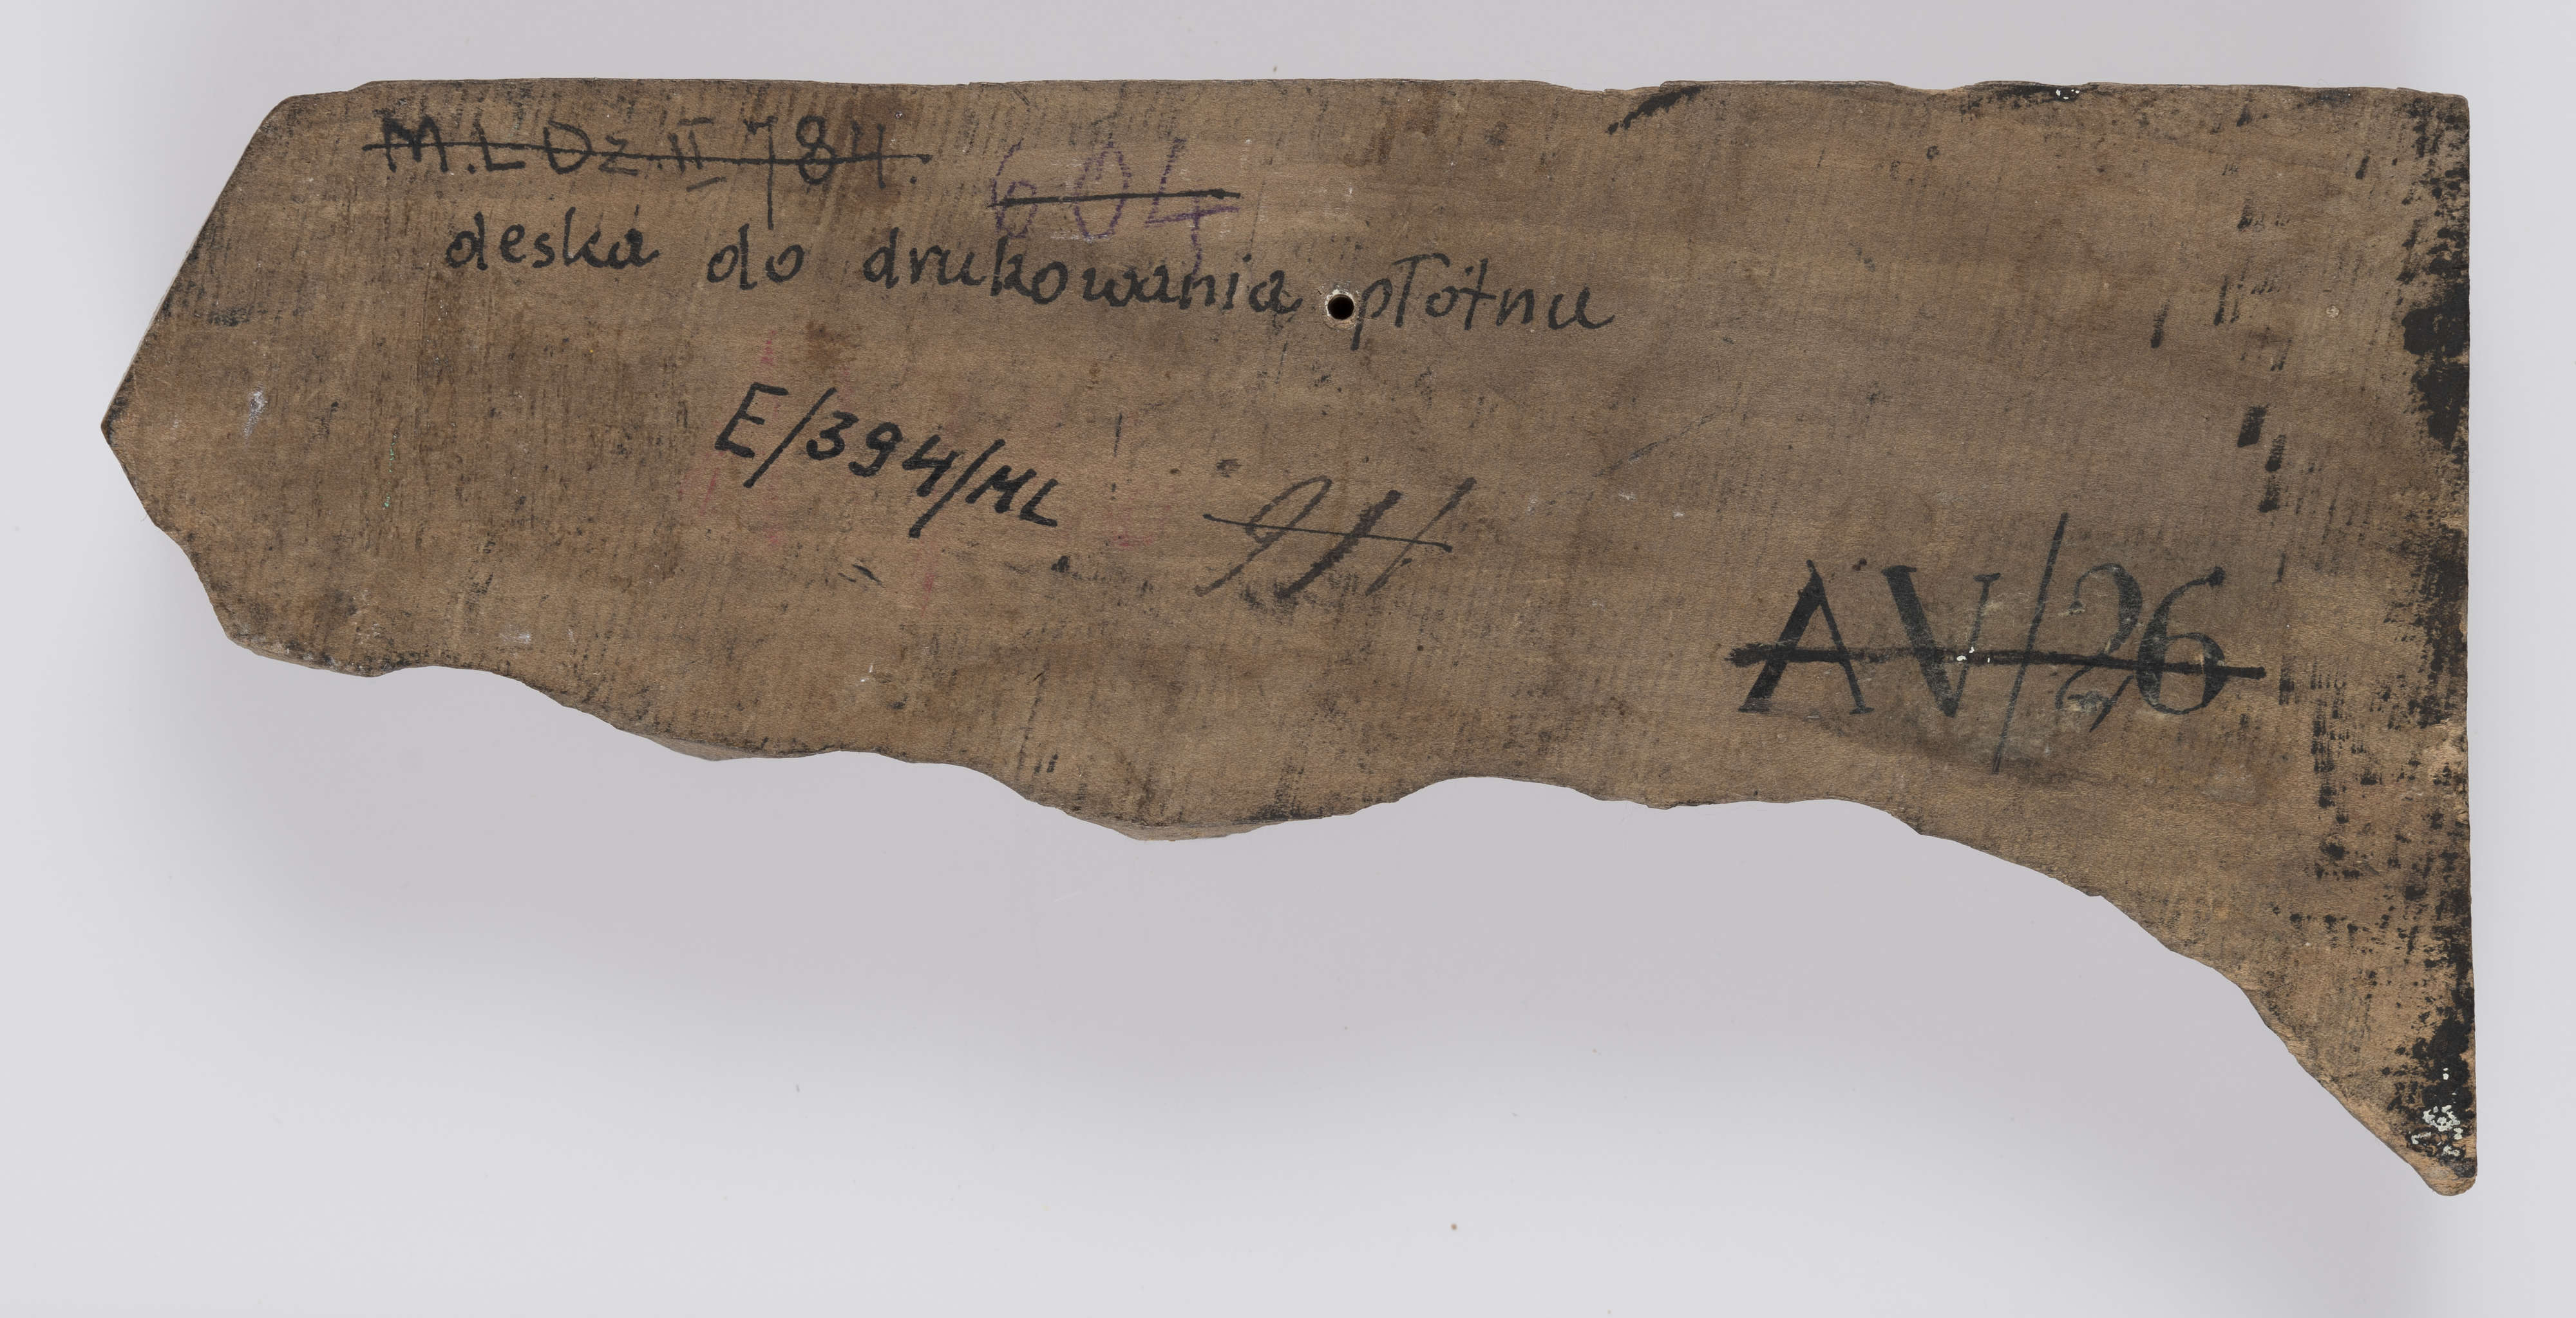 M.L Dz.II 784.
604
deska do drukowania płótna
E/394/ML
AV/26